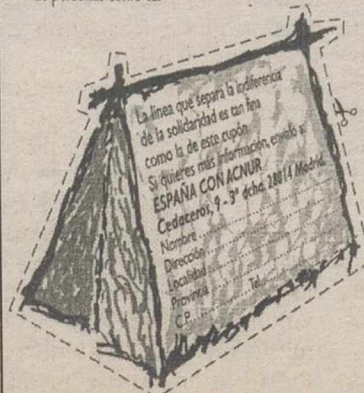 La línea que separa la indiferencia
de la solidaridad es tan fina
como la de este cupón.
Si quieres más información, envíalo a:
ESPAÑA CON ACNUR
Cedaceros, 9 - 3º dcha. 28014 Madrid.
Nombre
Dirección
Localidad
Provincia Tel.
C.P.